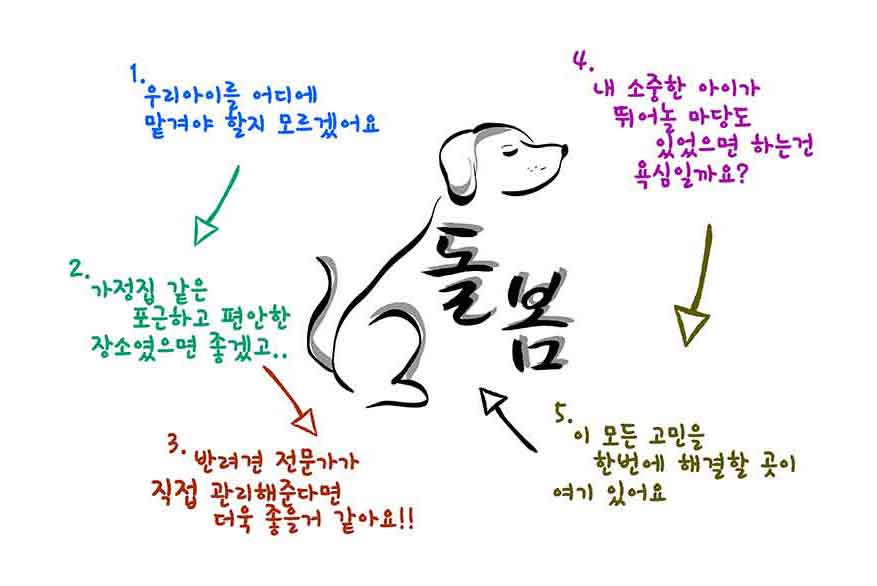 1.
우리아이를 어디에
맡겨야 할지 모르겠어요
2.
가정집 같은
포근하고 편안한
장소였으면 좋겠고..
3. 반려견 전문가가
직접 관리해준다면
더욱 좋을거 같아요!!
4.
내 소중한 아이가
뛰어놀 마당도
있었으면 하는건
욕심일까요?
5.
이 모든 고민을
한번에 해결할 곳이
여기 있어요
돌봄